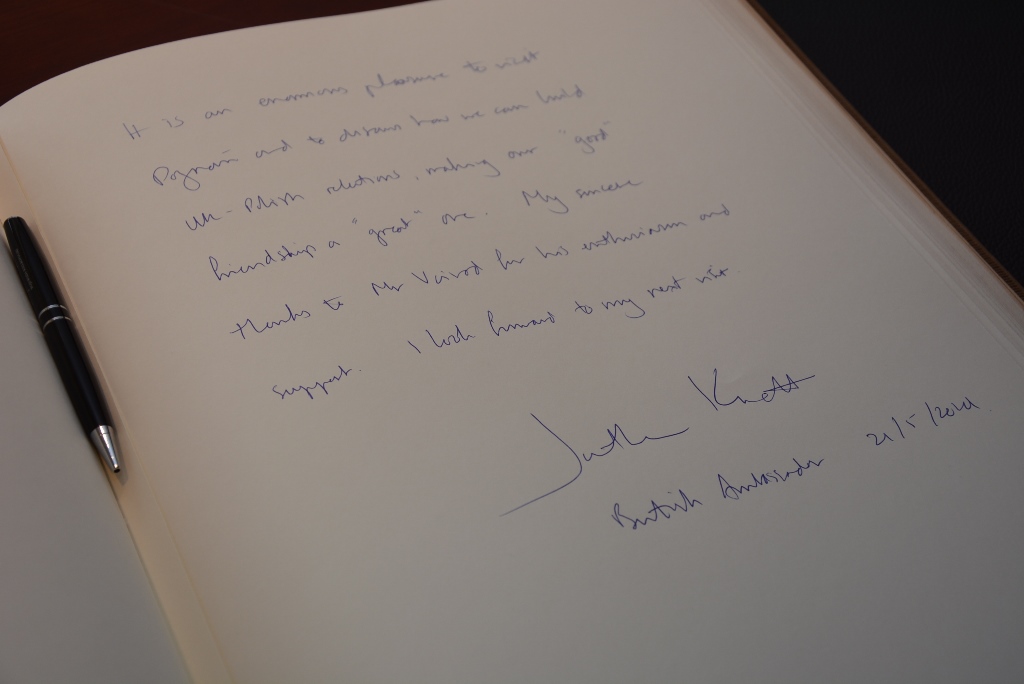 It is an enormous pleasure to visit
Poznań and to discuss how we can build
UK-Polish relations, making our "good"
friendship a "great" one. My sincere
thanks to Mr for his enthusiasm and
support. I look forward to my next visit.
Jonathan Knott
British Ambassador 21/5/